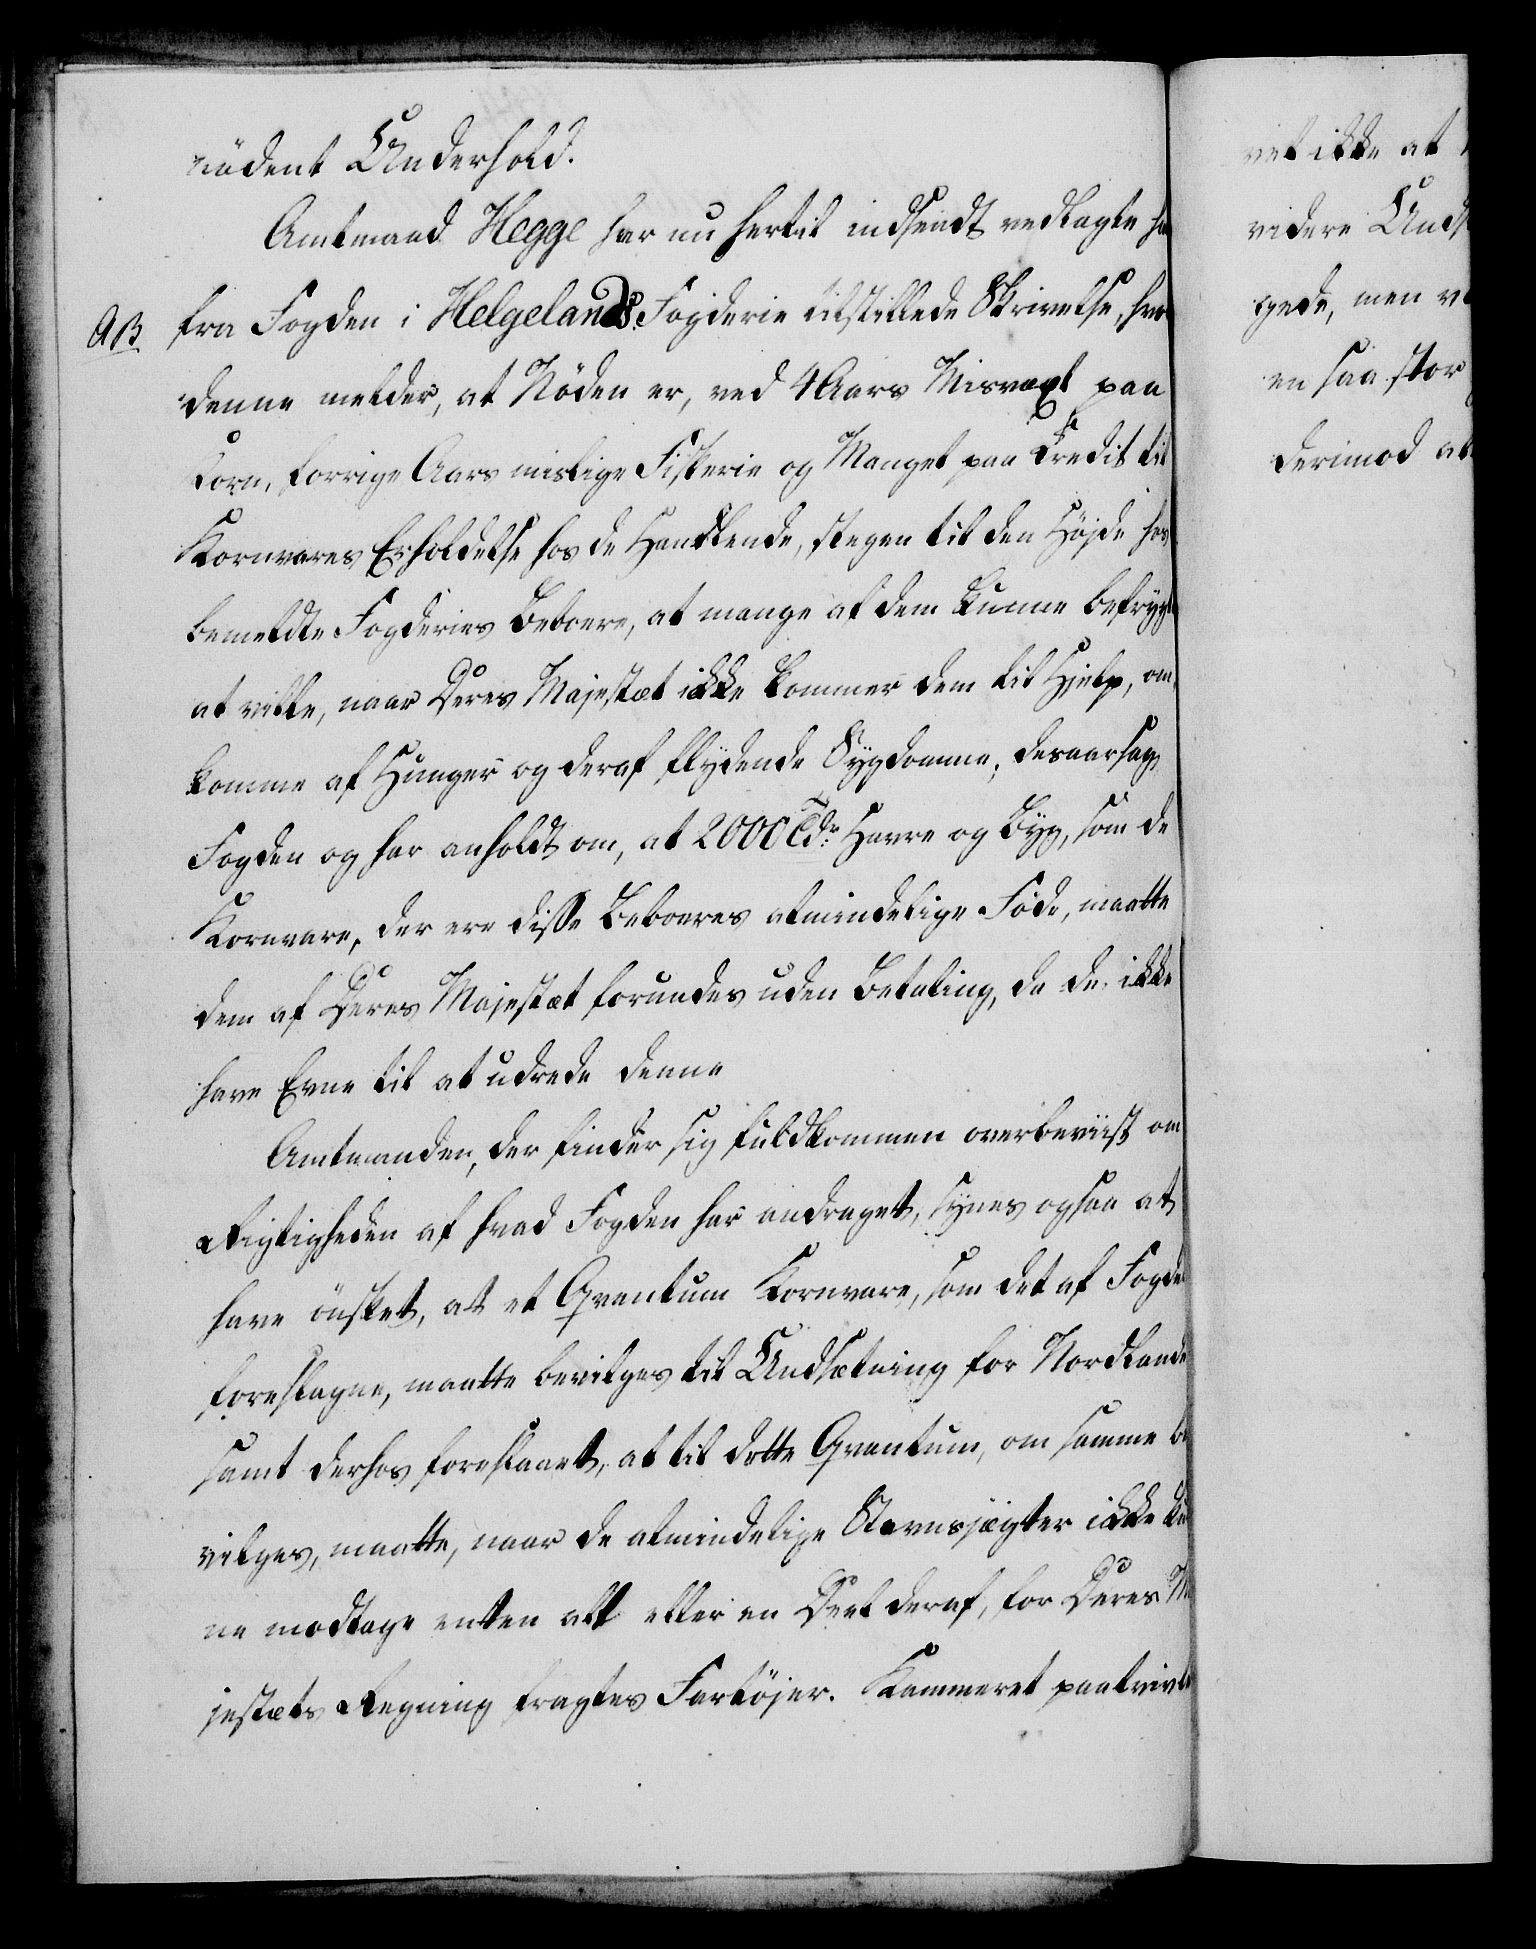 nödent Underhold.
Amtmand Hegge har nu hertil indsendt vedlagte ha
AB fra Fogden i Helgelands Fogderie tilstillede Skrivelse, hvo
denne melder, at Nöden er, ved 4 Aars Misvæxt paa
Korn, forrige Aars mislige Fiskerie og Mangel paa Credit til
Kornvares Erholdelse hos de Handlende, stegen til den Höjde hos
bemeldte Fogderies Beboere, at mange af dem kunne befryg
at ville, naar Deres Majestæt ikke kommer dem til Hjelp, om
komme af Hunger og deraf flydende Sygdomme, desaarsag
Fogden og har anholdt om, at 2000 Tdr: Havre og Byg, som de
Kornvare, der ere disse Beboeres almindelige Föde, maatte
dem af Deres Majestæt forundes uden Betaling, da de ikke
have Evne til at udrede denne
Amtmanden, der finder sig fuldkommen overbeviist om
Rigtigheden af hvad Fogden har andraget, synes ogsaa at
have önsket, at et Qvantum Kornvare, som det af Fogde
foreslagne, maatte bevilges til Undsætning for Nordlande
samt derhos foreslaaet, at til dette Qvantum, om samme be
vilges, maatte, naar de almindelige Stavnsjægter ikke ku
ne modtage enten alt eller en Deel deraf, for Deres M
jestæts Regning fragtes Fartöjer. Kammeret paatvivle
vel ikke at
videre Unds
gede, men v
en saa stor
derimod at